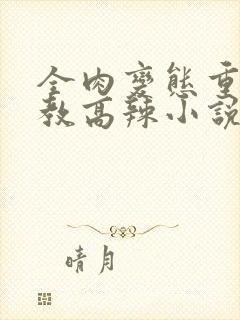 全肉變態重
教高辣小説
晴月